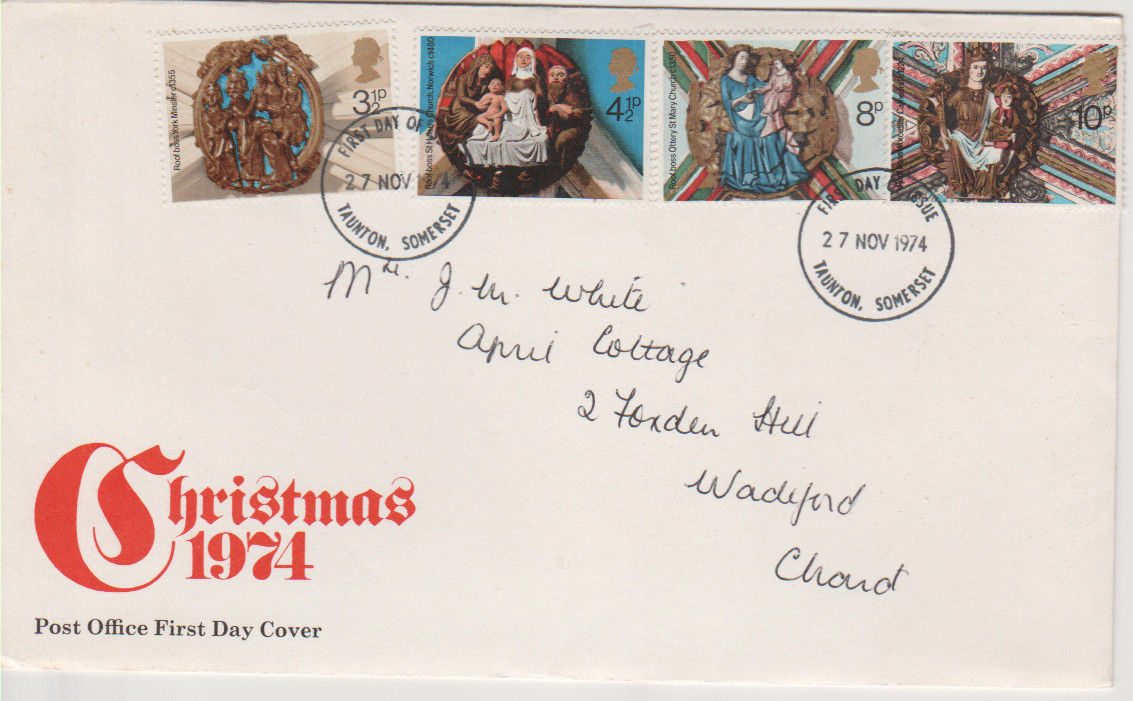 Roof boss York Minster c1355
3½P
Roof boss St Helen's Church, Norwich c1480
4½P
Roof boss Ottery St Mary Church c1350
8P
10P
FIRST DAY OF
27 NOV 1974
TAUNTON, SOMERSET
FIRST DAY ISSUE
27 NOV 1974
TAUNTON, SOMERSET
Mr. J. M. White
April Cottage
2 Foxden Hill
Wadeford
Chard
Christmas
1974
Post Office First Day Cover